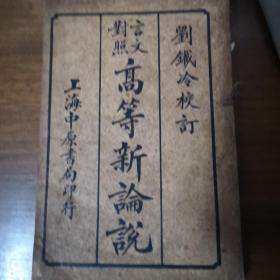 劉鐵冷校訂
言文對照
高等新論說
上海中原書局印行